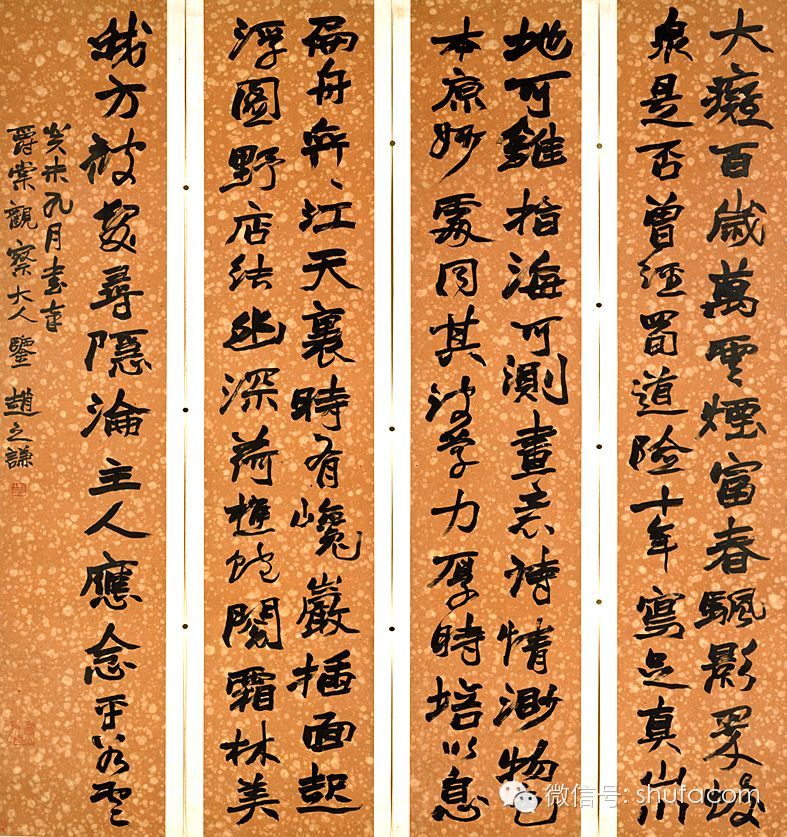 大癡百歲萬雲煙富春颿影
泉是否曾經蜀道險十年寫足真山川
地可雖指海可測畫意詩情渺物色
本原妙處同其學力厚時培以息
扁舟奔〻江天裏時有巉巖插面起
浮圖野店結幽深荷樵蛇閣霜林美
我方被髮尋隱淪主人應念平
癸未九月書奉
爵棠觀察大人鑒 趙之謙
微信号: shufacom